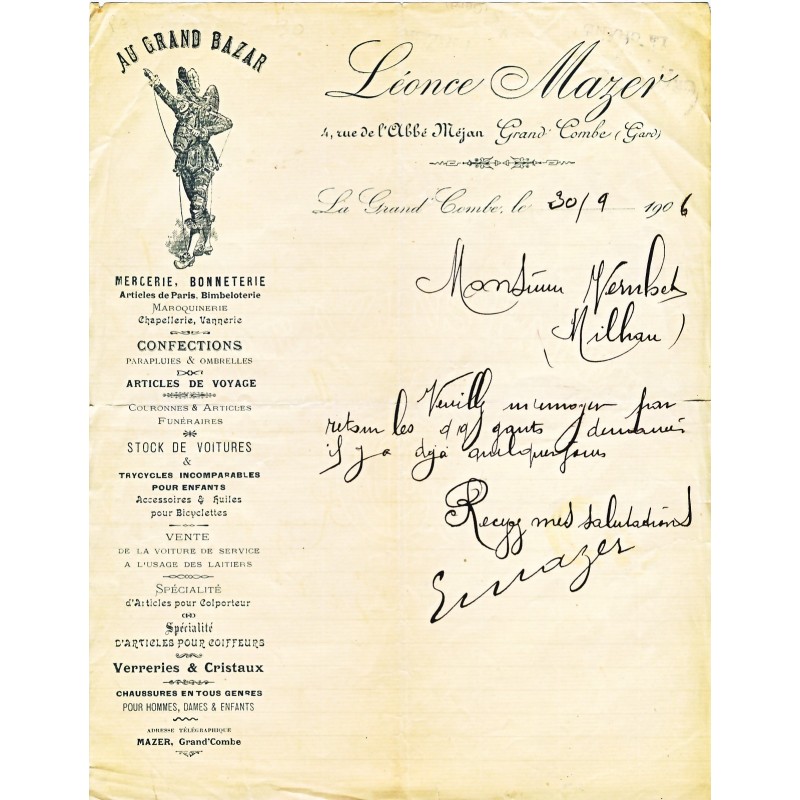 AU GRAND BAZAR
MERCERIE, BONNETERIE
Articles de Paris, Bimbeloterie
MAROQUINERIE
Chapellerie, Vannerie
CONFECTIONS
PARAPLUIES & OMBRELLES
ARTICLES DE VOYAGE
COURONNES & ARTICLES
FUNÉRAIRES
STOCK DE VOITURES
&
TRYCYCLES INCOMPARABLES
POUR ENFANTS
Accessoires & Huiles
pour Bicyclettes
VENTE
DE LA VOITURE DE SERVICE
A L'USAGE DES LAITIERS
SPÉCIALITÉ
d'Articles pour Colporteur
Spécialité
D'ARTICLES POUR COIFFEURS
Verreries & Cristaux
CHAUSSURES EN TOUS GENRES
POUR HOMMES, DAMES & ENFANTS
ADRESSE TÉLÉGRAPHIQUE
MAZER, Grand'Combe
Léonce Mazer
4, rue de l'Abbé Méjan Grand'Combe (Gard)
La Grand'Combe, le 30/9 1906
Monsieur
(Milhau)
Veuille m'envoyer par
retour les gants demandés
il y a déjà quelques jours
Recevez mes salutations
Mazer